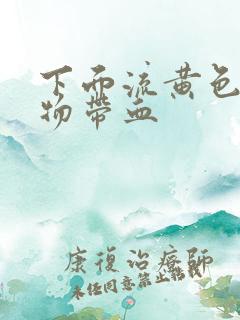 下面流黄色
物带血
康复治疗师
未任同意禁止转载